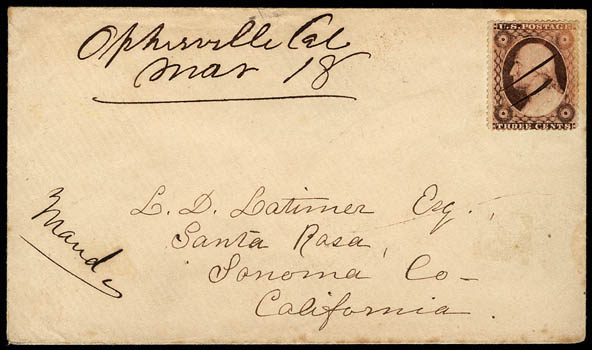 Ophirville Cal
Mar 18
U.S. POSTAGE
THREE CENTS
L. D. Latimer Esq.,
Santa Rosa,
Sonoma Co-
California.